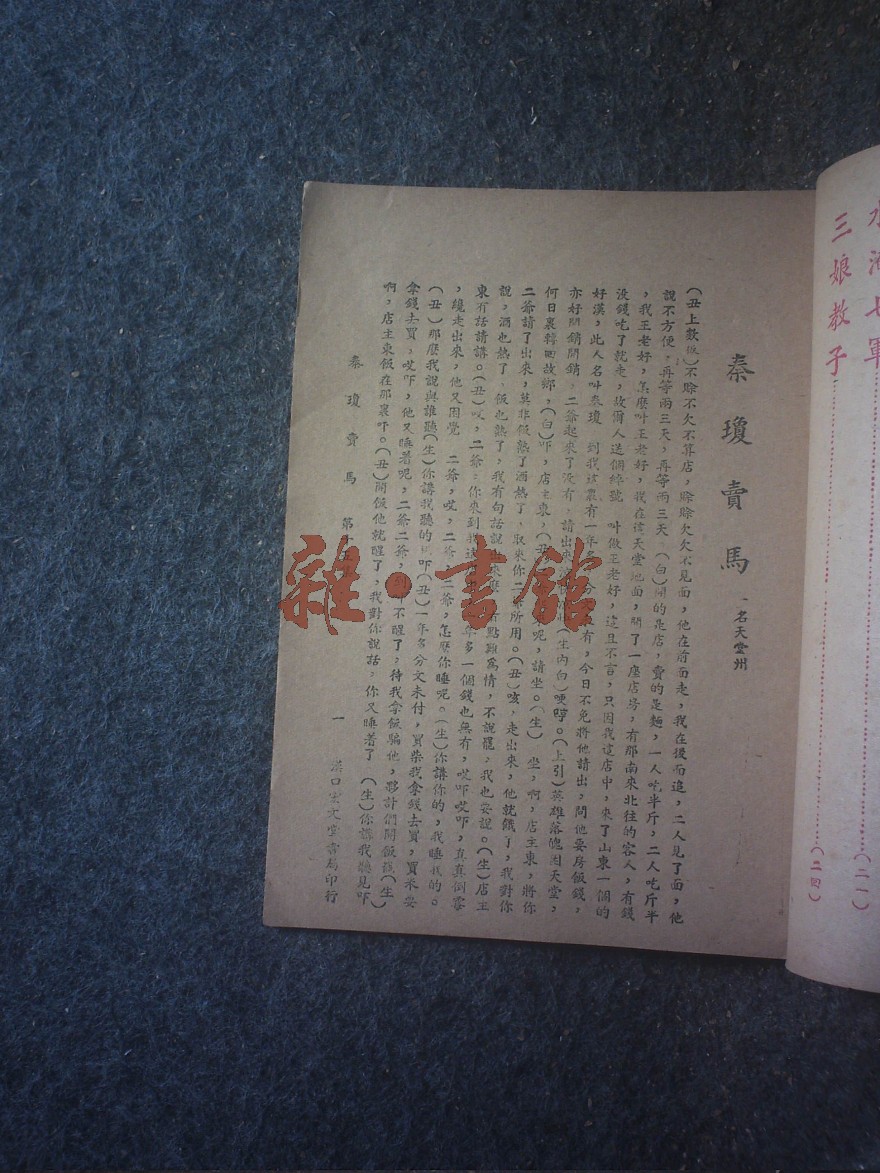 水淹七軍……(二一)
三娘教子……(二四)
秦瓊賣馬
一名天堂州
(丑上數板)不賒不欠不算店,賒賒欠欠不見面,他在前面走,我在後面追,二人見了面,他
說不方便,再等兩三天,再等兩三天。(白)開的是店,賣的是麵,一人吃半斤,二人吃斤半
,我王老好,怎麼叫王老好,我在這天堂地面,開了一座店房,有那南來北往的客人,有錢
沒錢吃了就走,故爾人送個綽號,叫做王老好,這且不言,只因我這店中,來了山東一個的
好漢,此人名叫秦瓊,到我這裏有一年多,分文沒有,今日不免將他請出,問他要房飯錢,
亦好開銷開銷,二爺起來了沒有,請出來(生內白)哽哼。(上引)英雄落魄困天堂,
何日裏轉回故鄉,(白)吓,店主東,(丑)呢,請坐。(生)坐,啊,店主東,將你
二爺請了出來,莫非飯熟了酒熱了,取來你二爺所用。(丑)咳,走出來,他就餓了,我對你
說,酒也熱了,飯也熟了,我有句話說出來麼,有點難為情,不說罷,我也要說。(生)店主
東有話請講。(丑)哎,二爺,你來到我這店中一年多一個錢也無有,哎吓哎吓,真真個客
,纔走出來,他又困覺,二爺,哎,二爺二爺,怎麼你睡呢。(生)你講你的,我睡我的。
(丑)那麼我說與誰聽(生)你講我聽的吓(丑)一年多分文未付,買柴我拿錢去買,買米要
拿錢去買,哎吓,他又睡著呢,二爺二爺,到不醒了,待我拿飯騙他,夥計們開飯該(生)
啊,店主東飯在那裏吓。(丑)開飯他就醒了,我對你說話,你又睡著了,(生)你講我聽見吓
秦瓊賣馬 第十五 一 漢口宏文堂書局印行
雜·書館